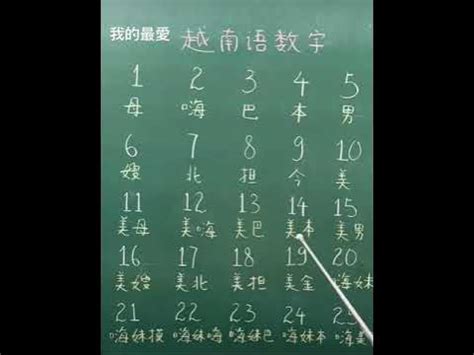 我的最愛
越南语数字
1 2 3 4 5
母 嗨 巴 本 男
6 7 8 9 10
嫂 北 担 今 美
11 12 13 14 15
美母 美嗨 美巴 美本 美男
16 17 18 19 20
美嫂 美北 美担 美金 嗨妹
21 22 23 24
嗨妹摸 嗨妹嗨 嗨妹巴 嗨妹本 嗨